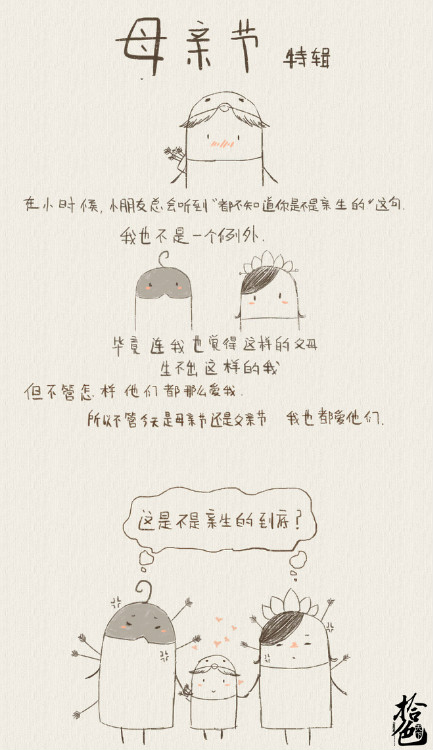 母亲节 特辑
在小时候, 小朋友总会听到“都不知道你是不是亲生的”这句.
我也不是一个例外.
毕竟连我也觉得这样的父母
生不出这样的我
但不管怎样他们都那么爱我.
所以不管今天是母亲节还是父亲节 我也都爱他们.
这是不是亲生的到底?
拾色